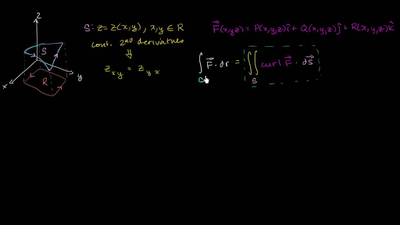 S: z = z(x,y), x,y ∈ R
cont. 2nd derivatives
⇓
z_xy = z_yx
F(x,y,z) = P(x,y,z)î + Q(x,y,z)ĵ + R(x,y,z)k̂
∫_C F · dr = ∬_S curl F · dS
z
S
R
x
y